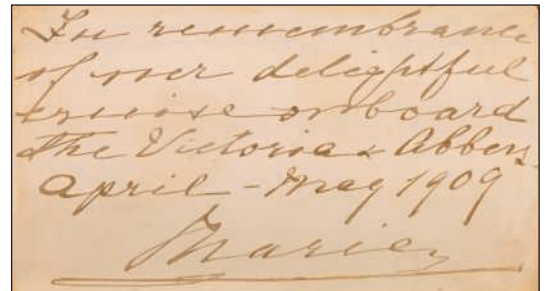 In remembrance
of our delightful
cruise onboard
the Victoria & Albert
April - May 1909
Marie